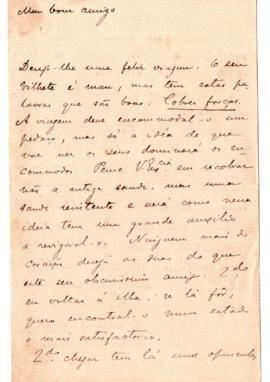 Meu bom amigo
Desejo-lhe uma feliz viagem. O seu
bilhete é mau, mas tem estas pa
lavras que são boas: Cobrei forças.
A viagem deve encommodal-o um
pedaço, mas só a idéa de que
vae ver os seus dominará os en-
commodos. Pense V. Ex.cia em recobrar
não a antiga saude, mas uma
saude resistente e verá como essa
ideia tem uma grande auxilio
a revigoral-o. Ninguem mais do
coração deseja as suas do que
este seu obscurissimo amigo. Qdo
eu voltar á Ilha, se lá fôr,
quero encontral-o num estado
o mais satisfactorio.
Qdo chegar tem lá uns opusculos